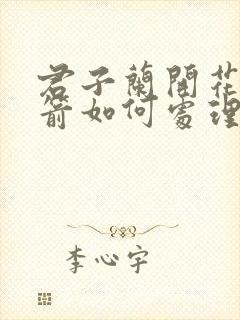 君子蘭開花
箭如何處理
李心宇